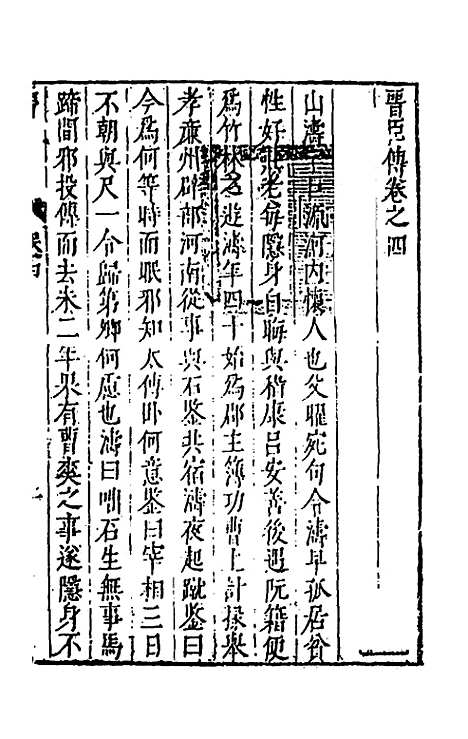 晋臣傳卷之四
山濤字巨源河内懷人也父曜宛句令濤早孤居貧
性好莊老每隱身自晦與嵇康呂安善後遇阮籍便
爲竹林之遊濤年四十始爲郡主簿功曹上計掾舉
孝廉州辟部河南從事與石鑒共宿濤夜起蹴鑒曰
今爲何等時而眠邪知太傅卧何意鑒曰宰相三日
不朝與尺一令歸第卿何慮也濤曰咄石生無事馬
蹄間邪投傳而去未二年果有曹爽之事遂隱身不